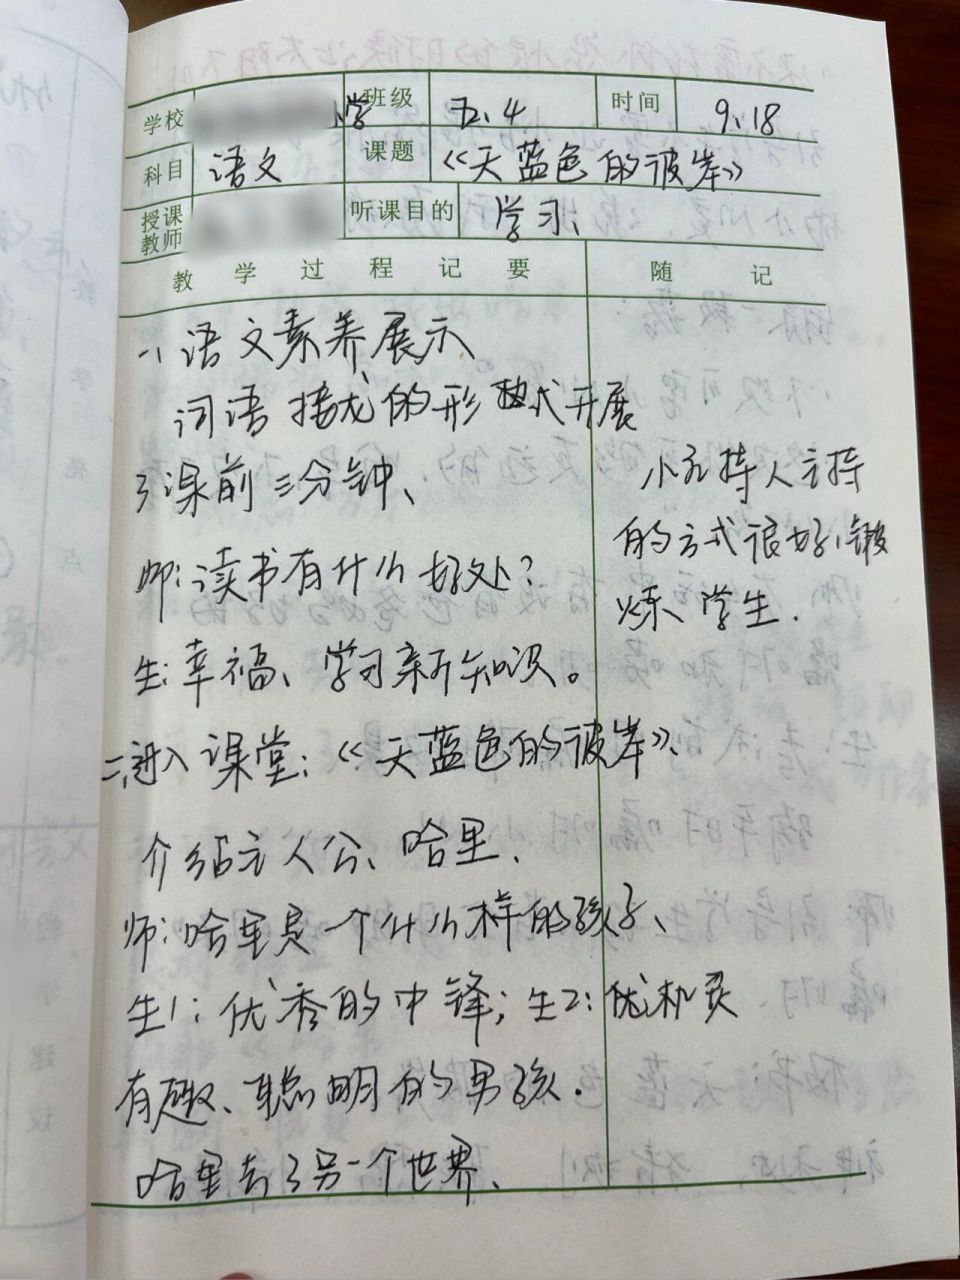 学校 小学 班级 五.4 时间 9.18
科目 语文 课题 《天蓝色的彼岸》
授课教师 听课目的 学习、
教学过程记要 随记
一、语文素养展示
词语接龙的形式开展
课前三分钟、
师:读书有什么好处?
生:幸福、学习新知识。
二、进入课堂:《天蓝色的彼岸》、
介绍主人公、哈里、
师:哈里是一个什么样的孩子、
生1:优秀的中锋;生2:优机灵
有趣、聪明的男孩.
哈里去了另一个世界、
小主持人主持
的方式很好,锻
炼学生.